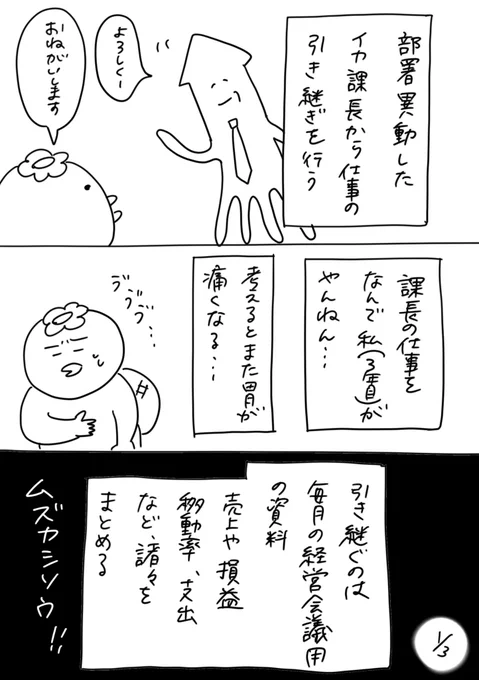 部署異動した
イカ課長から仕事の
引き継ぎを行う
よろしくー
おねがいします
課長の仕事を
なんで私(3年目)が
やんねん…
考えるとまた胃が
痛くなる…
ゔゔゔ…
引き継ぐのは
毎月の経営会議用
の資料
売上や損益
移動率、支出
など、諸々を
まとめる
ムズカシソウ!!
1/3